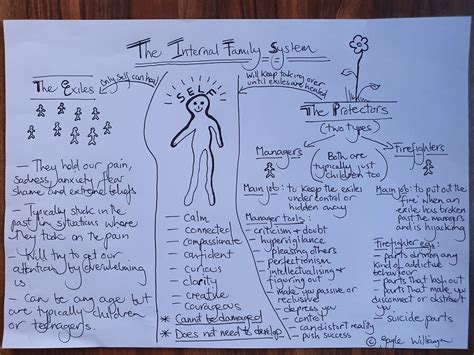 The Internal Family System
The Exiles
Only Self can heal
— They hold our pain,
sadness, anxiety, fear
shame and extreme beliefs
— Typically stuck in the
past in situations where
they took on the pain
— Will try to get our
attention by overwhelming
us.
— Can be any age but
are typically children
or teenagers.
SELF
— calm
— connected
— compassionate
— confident
— curious
— clarity
— creative
— courageous
* Cannot be damaged
* Does not need to develop
Will keep taking over
until exiles are healed
The Protectors
(two types)
Both are
typically just
children too
Managers
Main job: to keep the exiles
under control or
hidden away
Manager tools:
— criticism + doubt
— hypervigilance
— pleasing others
— perfectionism
— intellectualising +
figuring out
— make you passive or
reclusive
— depress you
— control
— can distort reality
— push success
Firefighters
Main job: to put out the
fire when an
exile has broken
past the managers
and is hijacking
Firefighter egs:
— parts driving any
kind of addictive
behaviour
— parts that lash out
— parts that make you
disconnect or distract
you
— suicide parts
©